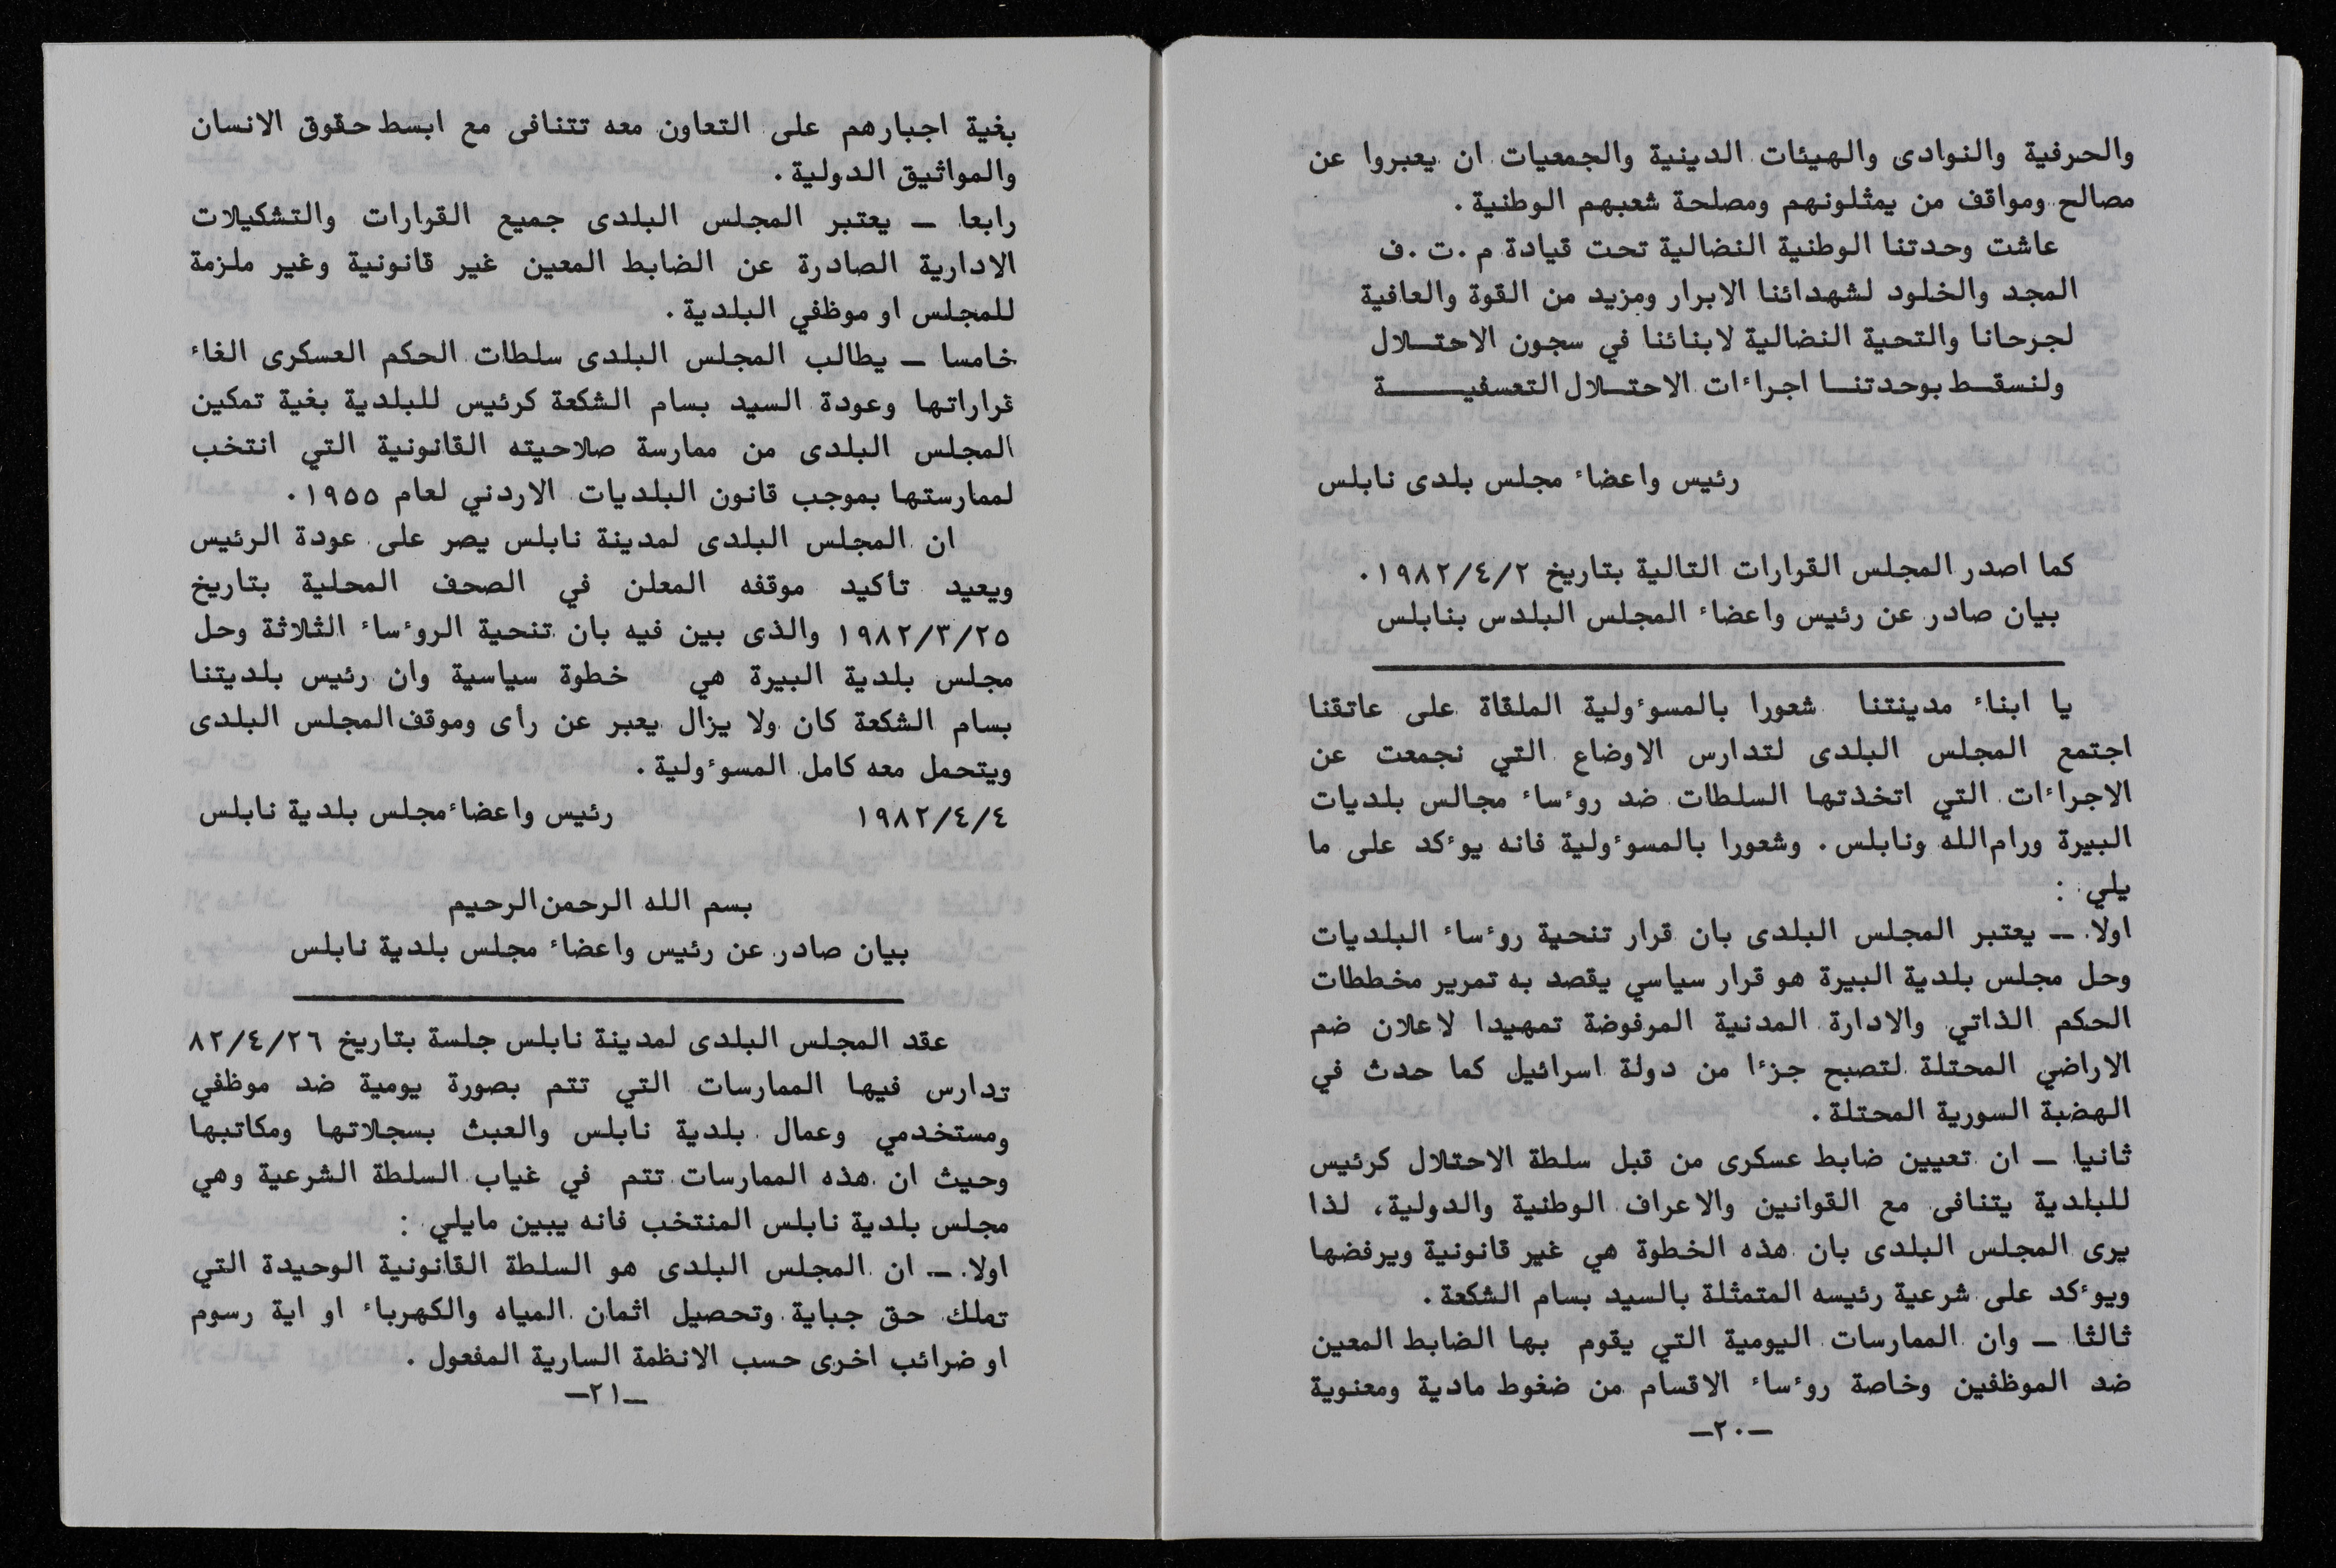 والحرفية والنوادى والهيئات الدينية والجمعيات ان يعبروا عن
مصالح ومواقف من يمثلونهم ومصلحة شعبهم الوطنية .
عاشت وحدتنا الوطنية النضالية تحت قيادة م .ت .ف
المجد والخلود لشهدائنا الابرار ومزيد من القوة والعافية
لجرحانا والتحية النضالية لابنائنا في سجون الاحتــلال
ولنسقــط بوحدتنــا اجراءات الاحتــلال التعسفيــــــة
رئيس واعضاء مجلس بلدى نابلس
كما اصدر المجلس القرارات التالية بتاريخ ١٩٨٢/٤/٢.
بيان صادر عن رئيس واعضاء المجلس البلدس بنابلس
يا ابناء مدينتنا شعورا بالمسوءولية الملقاة على عاتقنا
اجتمع المجلس البلدى لتدارس الاوضاع التي نجمعت عن
الاجراءات التي اتخذتها السلطات ضد روءساء مجالس بلديات
البيرة ورام الله ونابلس . وشعورا بالمسوءولية فانه يوءكد على ما
يلي :
اولا ـ يعتبر المجلس البلدى بان قرار تنحية روءساء البلديات
وحل مجلس بلدية البيرة هو قرار سياسي يقصد به تمرير مخططات
الحكم الذاتي والادارة المدنية المرفوضة تمهيدا لاعلان ضم
الاراضي المحتلة لتصبح جزءا من دولة اسرائيل كما حدث في
الهضبة السورية المحتلة .
ثانيا ـ ان تعيين ضابط عسكرى من قبل سلطة الاحتلال كرئيس
للبلدية يتنافى مع القوانين والاعراف الوطنية والدولية، لذا
يرى المجلس البلدى بان هذه الخطوة هي غير قانونية ويرفضها
ويوءكد على شرعية رئيسه المتمثلة بالسيد بسام الشكعة .
ثالثا ـ وان الممارسات اليومية التي يقوم بها الضابط المعين
ضد الموظفين وخاصة روءساء الاقسام من ضغوط مادية ومعنوية
ـ٢٠ـ
بغية اجبارهم على التعاون معه تتنافى مع ابسط حقوق الانسان
والمواثيق الدولية .
رابعا ـ يعتبر المجلس البلدى جميع القرارات والتشكيلات
الادارية الصادرة عن الضابط المعين غير قانونية وغير ملزمة
للمجلس او موظفي البلدية .
خامسا ـ يطالب المجلس البلدى سلطات الحكم العسكرى الغاء
قراراتها وعودة السيد بسام الشكعة كرئيس للبلدية بغية تمكين
المجلس البلدى من ممارسة صلاحيته القانونية التي انتخب
لممارستها بموجب قانون البلديات الاردني لعام ١٩٥٥ .
ان المجلس البلدى لمدينة نابلس يصر على عودة الرئيس
ويعيد تأكيد موقفه المعلن في الصحف المحلية بتاريخ
١٩٨٢/٣/٢٥ والذى بين فيه بان تنحية الروءساء الثلاثة وحل
مجلس بلدية البيرة هي خطوة سياسية وان رئيس بلديتنا
بسام الشكعة كان ولا يزال يعبر عن رأى وموقف المجلس البلدى
ويتحمل معه كامل المسوءولية .
١٩٨٢/٤/٤ رئيس واعضاء مجلس بلدية نابلس
بسم الله الرحمن الرحيم
بيان صادر عن رئيس واعضاء مجلس بلدية نابلس
عقد المجلس البلدى لمدينة نابلس جلسة بتاريخ ٨٢/٤/٢٦
تدارس فيها الممارسات التي تتم بصورة يومية ضد موظفي
ومستخدمي وعمال بلدية نابلس والعبث بسجلاتها ومكاتبها
وحيث ان هذه الممارسات تتم في غياب السلطة الشرعية وهي
مجلس بلدية نابلس المنتخب فانه يبين مايلي :
اولا ـ ان المجلس البلدى هو السلطة القانونية الوحيدة التي
تملك حق جباية وتحصيل اثمان المياه والكهرباء او اية رسوم
او ضرائب اخرى حسب الانظمة السارية المفعول .
ـ٢١ـ